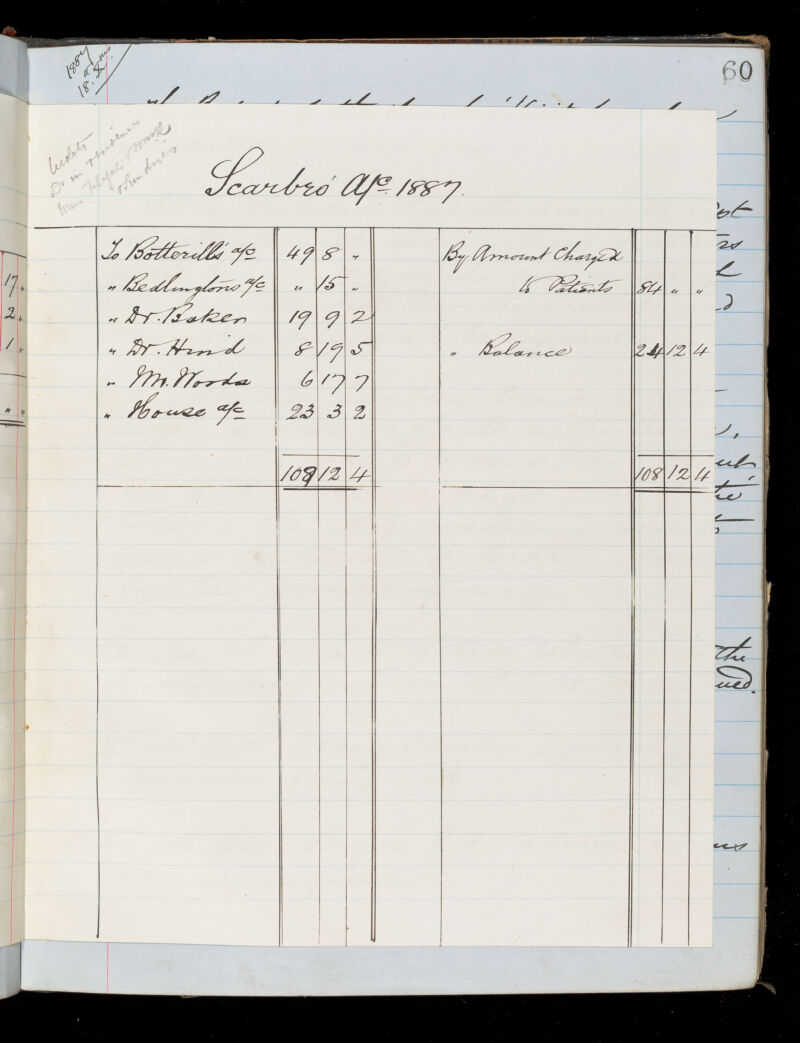 60
1887
18.
Scarbro' A/c. 1887.
To Botterill's a/c 49 8 "
" Bedlington's a/c " 15 "
" Dr. Baker 19 9 2
" Dr. Hind 8 19 5
" Mr. Woods 6 17 7
" House a/c 23 3 2
108 12 4
By Amount Charged
to Patients 84 " "
" Balance 24 12 4
108 12 4
17 "
2 "
1 "
" "
the